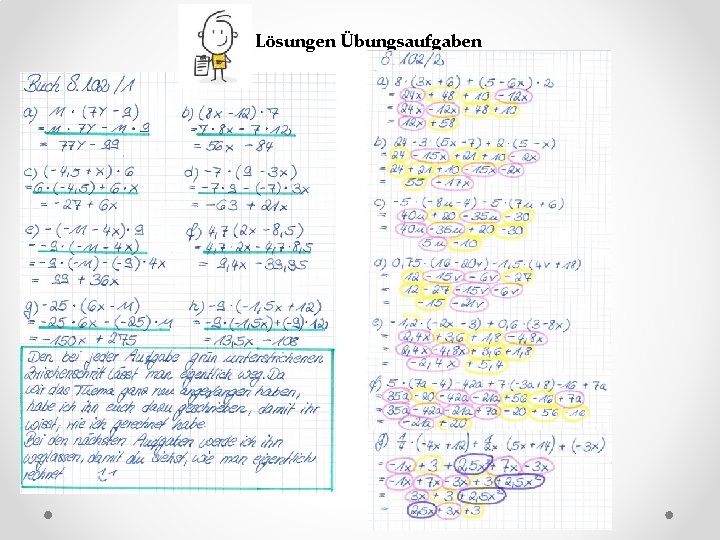 Lösungen Übungsaufgaben
Buch S.102/1
a) 11 · (7y - 9)
= 11 · 7y - 11 · 9
= 77y - 99
b) (8x - 12) · 7
= 7 · 8x - 7 · 12
= 56x - 84
c) (-4,5 + x) · 6
= 6 · (-4,5) + 6 · x
= -27 + 6x
d) -7 · (9 - 3x)
= -7 · 9 - (-7) · 3x
= -63 + 21x
e) -(-11 - 4x) · 9
= -9 · (-11 - 4x)
= -9 · (-11) - (-9) · 4x
= 99 + 36x
f) 4,7 (2x - 8,5)
= 4,7 · 2x - 4,7 · 8,5
= 9,4x - 39,95
g) -25 · (6x - 11)
= -25 · 6x - (-25) · 11
= -150x + 275
h) -9 · (-1,5x + 12)
= -9 · (-1,5x) + (-9) · 12
= 13,5x - 108
Den bei jeder Aufgabe grün unterstrichenen
Zwischenschritt lässt man eigentlich weg. Da
wir das Thema ganz neu angefangen haben,
habe ich ihn euch dazu geschrieben, damit ihr
wisst, wie ich gerechnet habe.
Bei den nächsten Aufgaben werde ich ihn
weglassen, damit du siehst, wie man eigentlich
rechnet
S. 102/2
a) 8 · (3x + 6) + (5 - 6x) · 2
= 24x + 48 + 10 - 12x
= 24x - 12x + 48 + 10
= 12x + 58
b) 24 - 3 · (5x - 7) + 2 · (5 - x)
= 24 - 15x + 21 + 10 - 2x
= 24 + 21 + 10 - 15x - 2x
= 55 - 17x
c) -5 · (-8u - 4) - 5 · (7u + 6)
= 40u + 20 - 35u - 30
= 40u - 35u + 20 - 30
= 5u - 10
d) 0,75 · (16 - 20v) - 1,5 · (4v + 18)
= 12 - 15v - 6v - 27
= 12 - 27 - 15v - 6v
= -15 - 21v
e) -1,2 · (-2x - 3) + 0,6 · (3 - 8x)
= 2,4x + 3,6 + 1,8 - 4,8x
= 2,4x - 4,8x + 3,6 + 1,8
= -2,4x + 5,4
f) 5 · (7a - 4) - 42a + 7 · (-3a + 8) - 16 + 7a
= 35a - 20 - 42a - 21a + 56 - 16 + 7a
= 35a - 42a - 21a + 7a - 20 + 56 - 16
= -21a + 20
= -1x + 3 + 2,5x² + 7x - 3x
= -1x + 7x - 3x + 3 + 2,5x²
= 3x + 3 + 2,5x²
= 2,5x² + 3x + 3